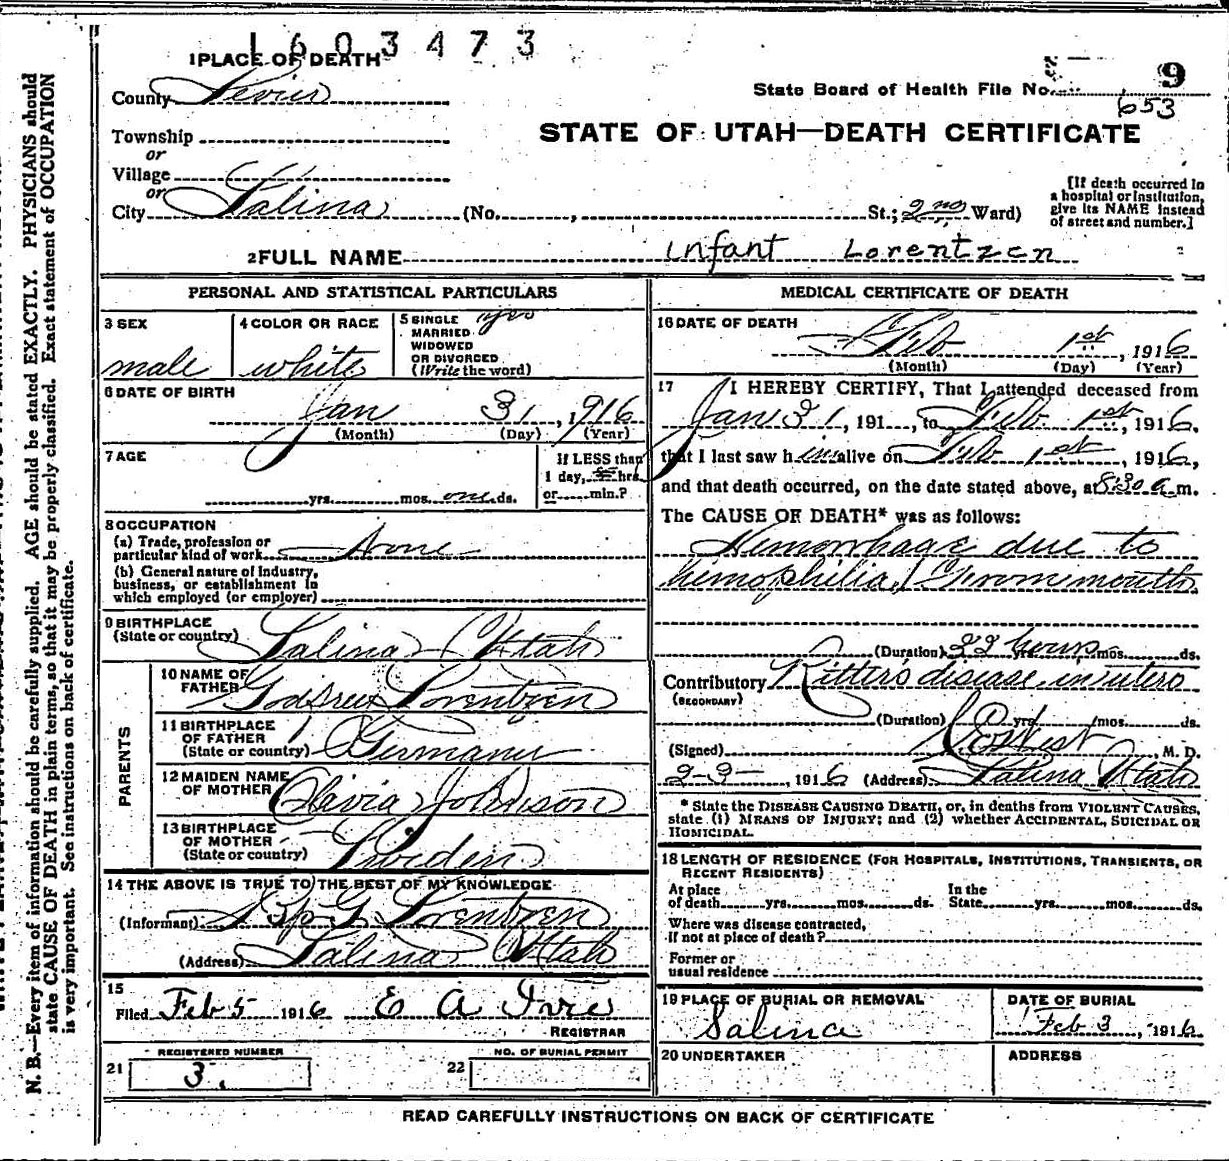 1603473
1 PLACE OF DEATH
County Sevier
State Board of Health File No. 9
653
Township
or
Village
or
City Salina (No. , St.; 2nd Ward)
STATE OF UTAH—DEATH CERTIFICATE
[If death occurred in
a hospital or institution,
give its NAME instead
of street and number.]
2 FULL NAME Infant Lorentzen
PERSONAL AND STATISTICAL PARTICULARS
3 SEX
male
4 COLOR OR RACE
white
5 SINGLE yes
MARRIED
WIDOWED
OR DIVORCED
(Write the word)
6 DATE OF BIRTH
Jan 31, 1916
(Month) (Day) (Year)
7 AGE
yrs. mos. one ds.
If LESS than
1 day, hrs.
or min.?
8 OCCUPATION
(a) Trade, profession or
particular kind of work None
(b) General nature of industry,
business, or establishment in
which employed (or employer)
9 BIRTHPLACE
(State or country) Salina Utah
PARENTS
10 NAME OF
FATHER Lorentzen
11 BIRTHPLACE
OF FATHER
(State or country) Germany
12 MAIDEN NAME
OF MOTHER Olavia Johnson
13 BIRTHPLACE
OF MOTHER
(State or country) Sweden
14 THE ABOVE IS TRUE TO THE BEST OF MY KNOWLEDGE
(Informant) G Lorentzen
(Address) Salina Utah
15
Filed Feb 5 1916 E A
REGISTRAR
REGISTERED NUMBER
21 3.
NO. OF BURIAL PERMIT
22
MEDICAL CERTIFICATE OF DEATH
16 DATE OF DEATH
Feb 1st, 1916
(Month) (Day) (Year)
17 I HEREBY CERTIFY, That I attended deceased from
Jan 31, 191 , to Feb 1st, 1916,
that I last saw him alive on Feb 1st, 1916,
and that death occurred, on the date stated above, at 8:30 a. m.
The CAUSE OF DEATH* was as follows:
Hemorrhage due to
hemophilia, (From mouth
(Duration) 22 hours yrs. mos. ds.
Contributory Ritter's disease in utero
(SECONDARY)
(Duration) yrs. mos. ds.
(Signed) West, M. D.
2-3-, 1916 (Address) Salina Utah
* State the DISEASE CAUSING DEATH, or, in deaths from VIOLENT CAUSES,
state (1) MEANS OF INJURY; and (2) whether ACCIDENTAL, SUICIDAL OR
HOMICIDAL.
18 LENGTH OF RESIDENCE (FOR HOSPITALS, INSTITUTIONS, TRANSIENTS, OR
RECENT RESIDENTS)
At place
of death yrs. mos. ds.
In the
State yrs. mos. ds.
Where was disease contracted,
if not at place of death?
Former or
usual residence
19 PLACE OF BURIAL OR REMOVAL
Salina
DATE OF BURIAL
Feb 3, 1916
20 UNDERTAKER
ADDRESS
READ CAREFULLY INSTRUCTIONS ON BACK OF CERTIFICATE
N. B.—Every item of information should be carefully supplied. AGE should be stated EXACTLY. PHYSICIANS should
state CAUSE OF DEATH in plain terms, so that it may be properly classified. Exact statement of OCCUPATION
is very important. See instructions on back of certificate.